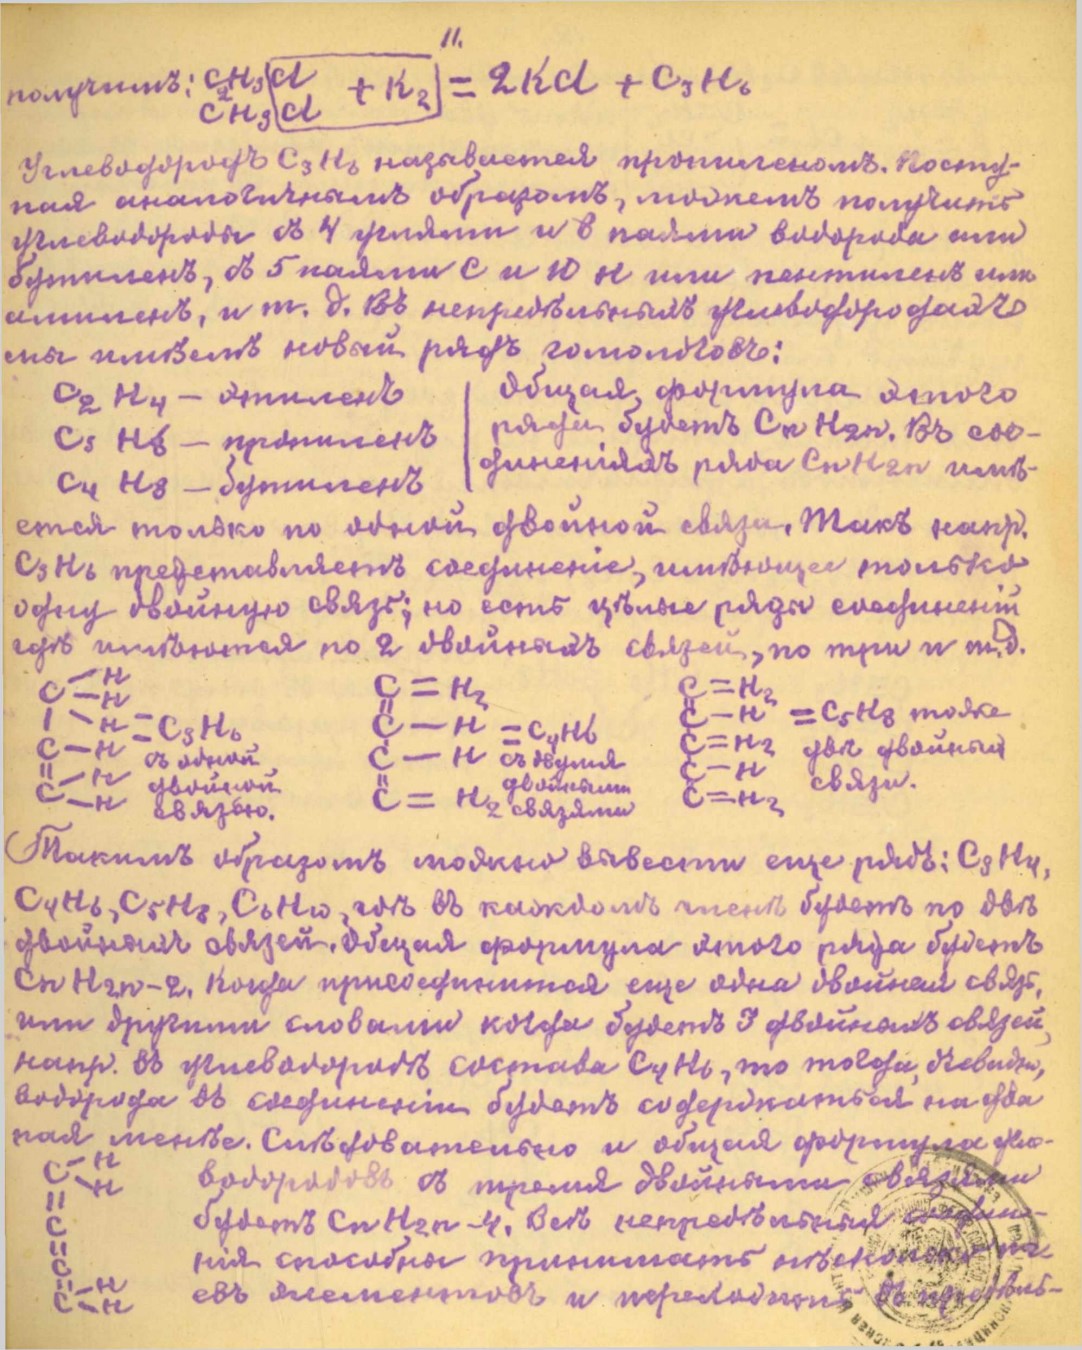 11.
получимъ: CH3Cl + K2 = 2KCl + C3H6
C2
CH3Cl
Углеводородъ C3H6 называется пропиленомъ. Посту-
пая аналогичнымъ образомъ, можемъ получить
углеводороды съ 4 углями и 8 паями водорода или
бутиленъ, съ 5 паями C и 10 H или пентиленъ или
амиленъ, и т. д. Въ непредѣльныхъ углеводородахъ
мы имѣемъ новый рядъ гомологовъ:
C2 H4 — этиленъ
C3 H6 — пропиленъ
C4 H8 — бутиленъ
Общая формула этого
ряда будетъ CnH2n. Въ сое-
диненіяхъ ряда CnH2n имѣ-
ется только по одной двойной связи. Такъ напр.
C3H6 представляетъ соединеніе, имѣющее только
одну двойную связь; но есть цѣлые ряды соединеній
гдѣ имѣются по 2 двойныхъ связей, по три и т.д.
C — H
— H
| — H = C3H6
C — H съ одной
|| — H двойной
C — H связью.
C = H2
||
C — H = C4H6
C — H съ двумя
|| двойными
C = H2 связями
C = H2
||
C — H = C5H8 тоже
C = H2 двѣ двойныя
C — H связи.
C = H2
Такимъ образомъ можно вывести еще рядъ: C3H4,
C4H6, C5H8, C6H10, гдѣ въ каждомъ членѣ будетъ по двѣ
двойныхъ связей. Общая формула этого ряда будетъ
CnH2n-2. Когда присоединится еще одна двойная связь,
или другими словами когда будетъ 3 двойныхъ связей,
напр. въ углеводородѣ состава C4H6, то тогда, очевидно,
водорода въ соединеніи будетъ содержаться на два
пая менѣе. Слѣдовательно и общая формула угле-
водородовъ съ тремя двойными связями
будетъ CnH2n-4. Всѣ непредѣльныя соедине-
нія способны принимать нѣсколько па-
евъ элементовъ и переходить въ предѣль-
C — H
— H
||
C
||
C
|| — H
C — H